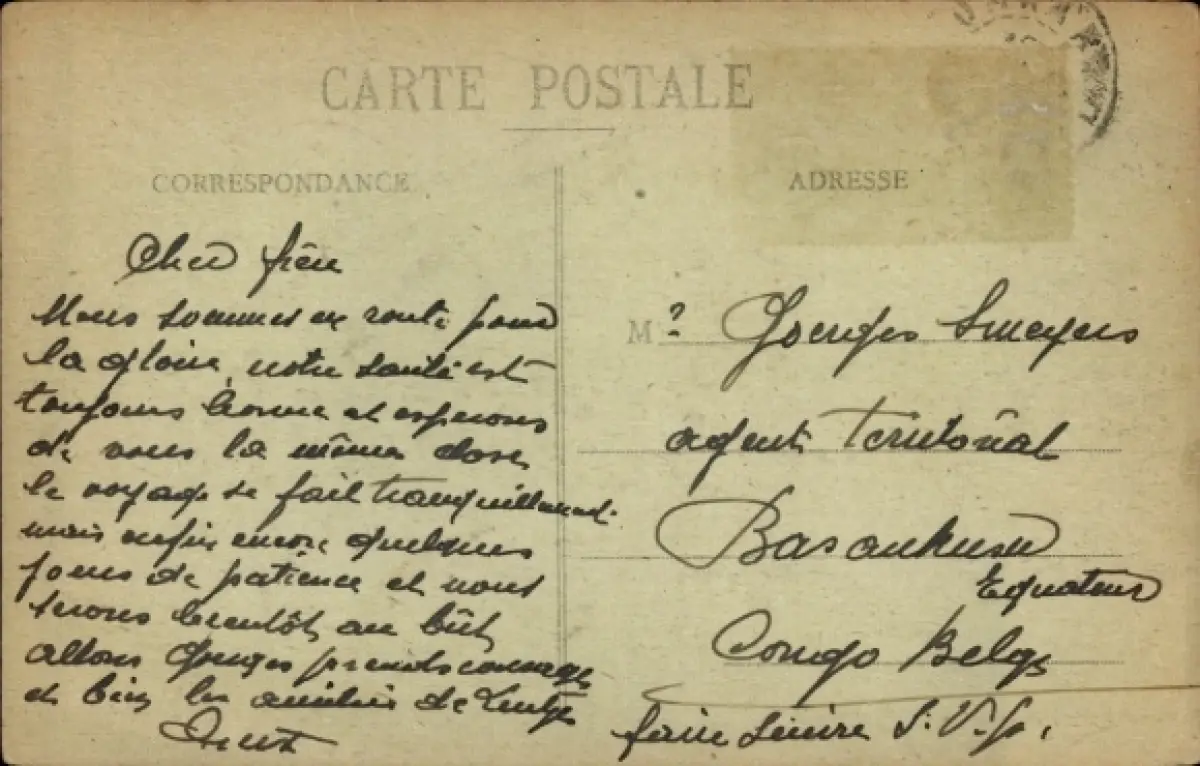 CARTE POSTALE
CORRESPONDANCE
ADRESSE
Cher frère
Nous sommes en route pour
la gloire, notre santé est
toujours bonne et esperons
de vous la même chose
le voyage se fait tranquillement
mais enfin encore quelques
jours de patience et nous
serons bientôt au bût,
allons Georges prends courage
et bien les amitiés de
M ? Georges Smeyers
agent Territorial
Basankusu
Equateur
Congo Belge
faire suivre S. V. P.